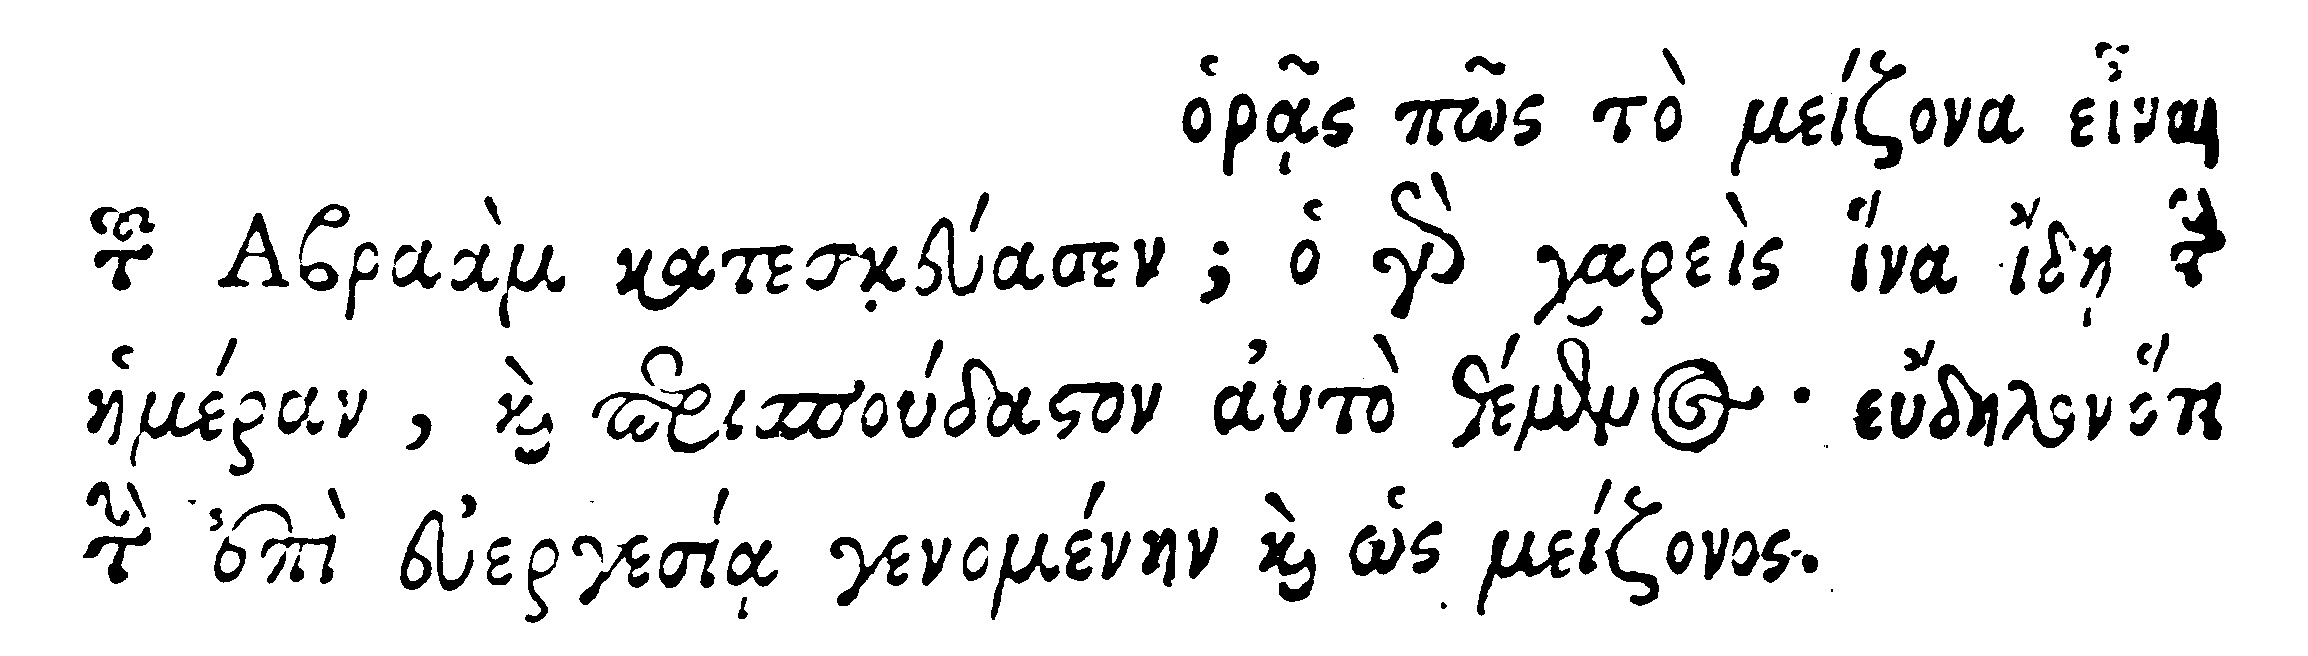 ὁρᾷς πῶς τὸ μείζονα εἶναι
τοῦ Αβραὰμ κατεσκεύασεν; ὁ γὰρ χαρεὶς ἵνα ἴδῃ τὴν
ἡμέραν, καὶ περισπούδαστον αὐτὸ θέμενος · εὔδηλον ὅτι
τὴν ἐπὶ εὐεργεσίᾳ γενομένην καὶ ὡς μείζονος.